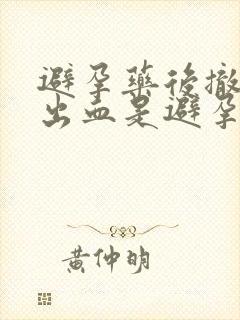 避孕藥後撤
出血是避孕
黃仲明